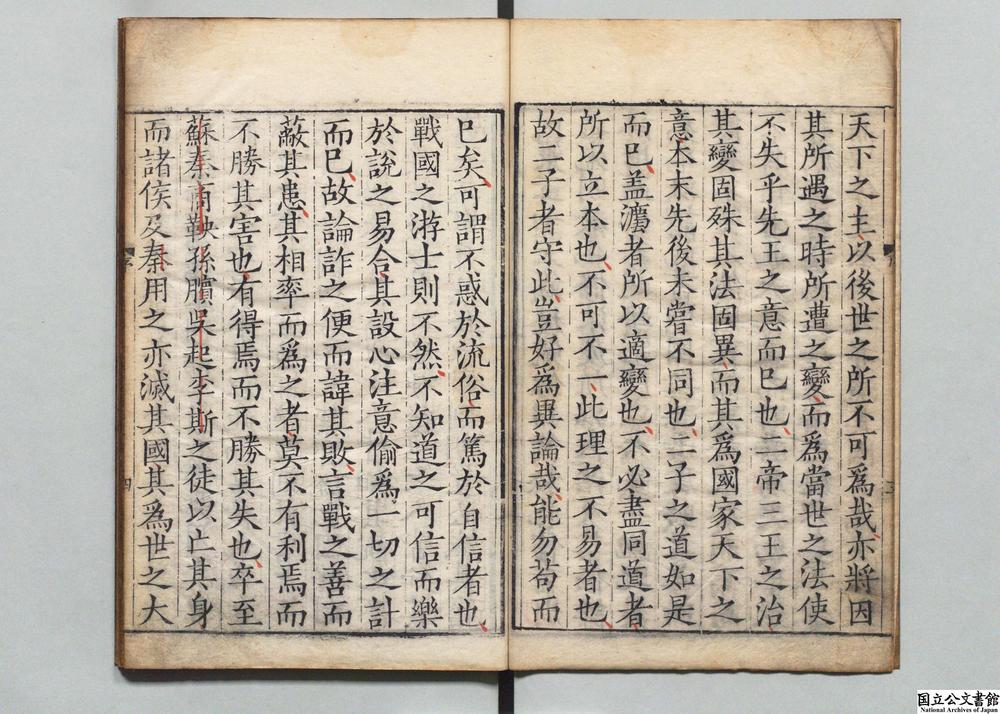 天下之主以後世之所不可爲哉亦將因
其所遇之時所遭之變而爲當世之法使
不失乎先王之意而巳也二帝三王之治
其變固殊其法固異而其爲國家天下之
意本末先後未嘗不同也二子之道如是
而巳盖灋者所以適變也不必盡同道者
所以立本也不可不一此理之不易者也
故二子者守此豈好爲異論哉能勿苟而
巳矣可謂不惑於流俗而篤於自信者也
戰國之游士則不然不知道之可信而樂
於說之易合其設心注意偷爲一切之計
而巳故論詐之便而諱其敗言戰之善而
蔽其患其相率而爲之者莫不有利焉而
不勝其害也有得焉而不勝其失也卒至
蘇秦商鞅孫臏吳起李斯之徒以亡其身
而諸侯及秦用之亦滅其國其爲世之大
四
国立公文書館
National Archives of Japan